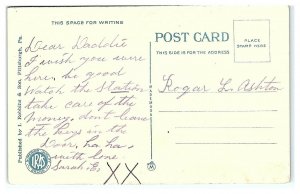 THIS SPACE FOR WRITING
POST CARD
THIS SIDE IS FOR THE ADDRESS
PLACE
STAMP HERE
Dear Daddie
I wish you were
here, be good
Watch the Station
take care of the
money, don't leave
the keys in the
Door, ha, ha
with love
Sarah E.
XX
Rogar L. Ashton
Published by I. Robbins & Son, Pittsburgh, Pa.